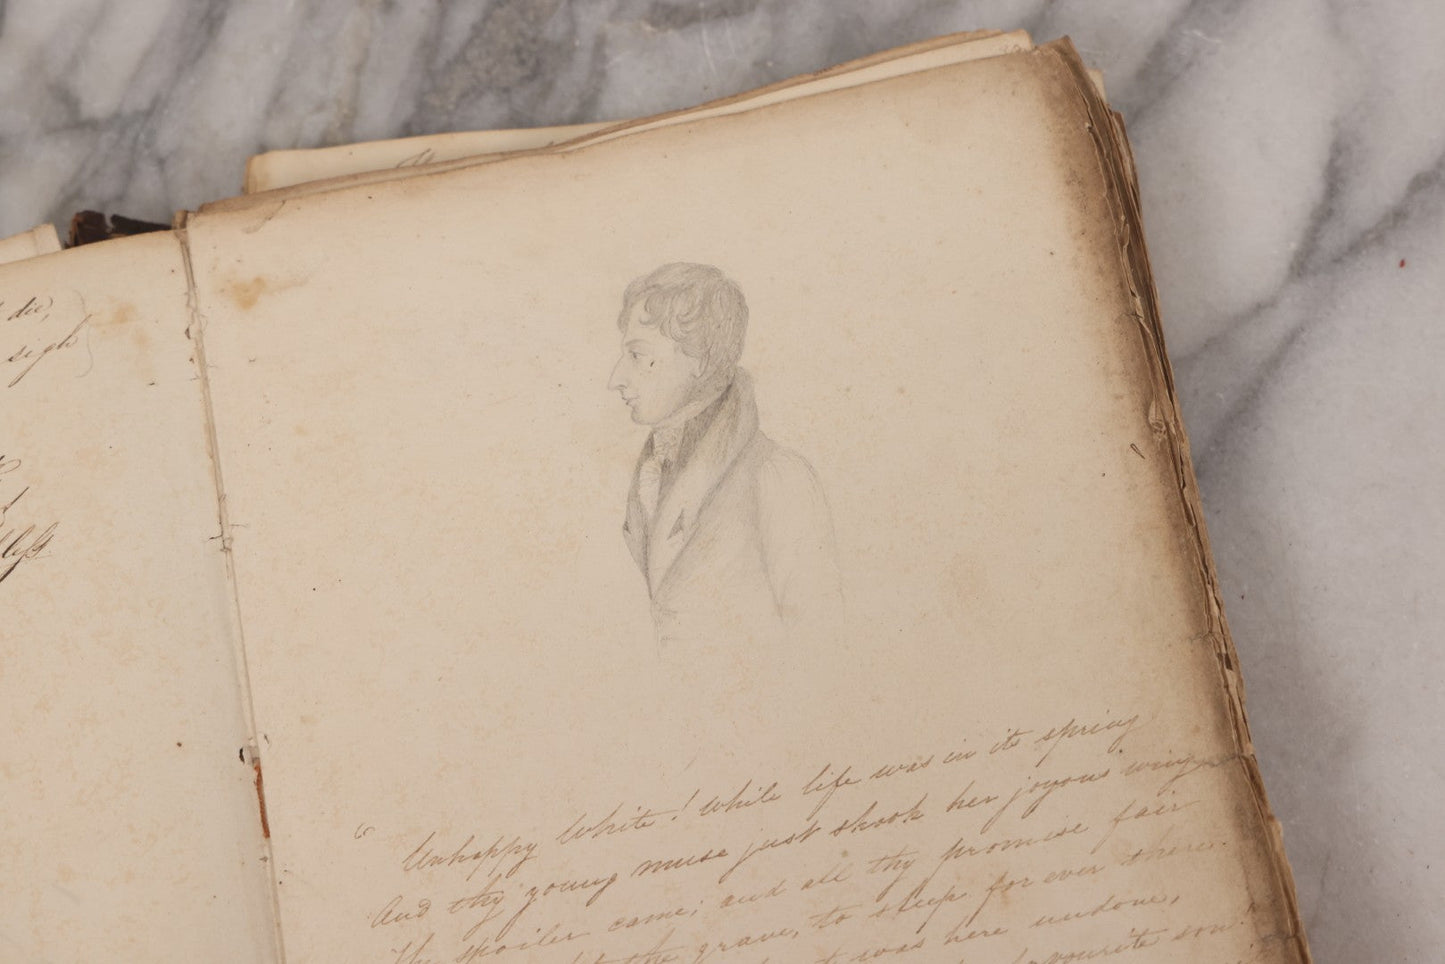 die,
sigh
"Unhappy White! while life was in its spring
And thy young muse just shook her joyous wing,
The spoiler came; and all thy promise fair
the grave, to sleep for ever there.
was here undone,
favourite son."